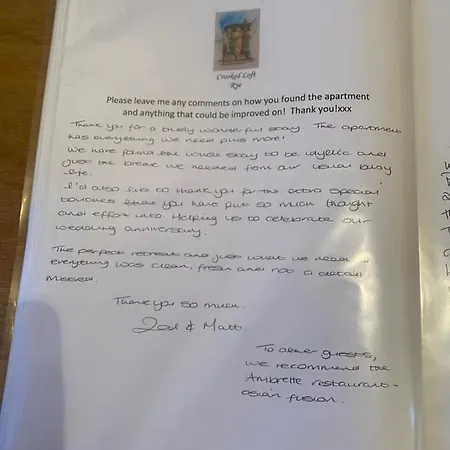 Crooked Loft
Rye
Please leave me any comments on how you found the apartment
and anything that could be improved on! Thank you!xxx
Thank you for a truly wonderful stay. The apartment
has everything we need plus more!
We have found the whole stay to be idyllic and
just the break we needed from our usual busy
life.
I'd also like to thank you for the extra special
touches that you have put so much thought
and effort into. Helping us to celebrate our
wedding anniversary.
The perfect retreat and just what we need
everything was clean, fresh and not a detail
missed.
Thank you so much.
& Matt.
To other guests,
we recommend the
Ambrette restaurant -
asian fusion.